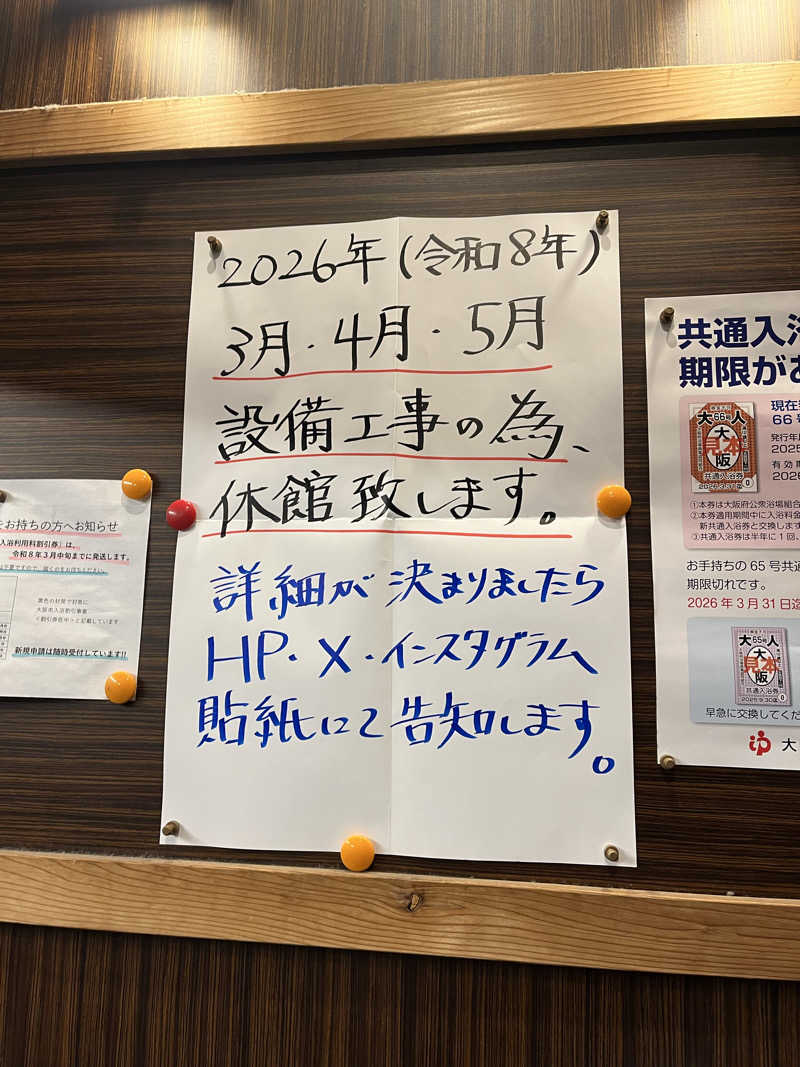 2026年(令和8年)
3月・4月・5月
設備工事の為、
休館致します。
詳細が決まりましたら
HP・X・インスタグラム
貼紙にて告知します。
お持ちの方へお知らせ
入浴利用料割引券』は、
令和8年3月中旬までに発送します。
黄色の封筒で封筒に
大阪市入浴割引事業
<割引券在中>と記載しています
新規申請は随時受付しています!!
共通入浴
期限があ
現在
66号
発行年
2025
有効期
2026
大 66号 人
大
見本
阪
共通入浴券
①本券は大阪府公衆浴場組合
②本券適用期間中に入浴料金
新共通入浴券と交換しま
③共通入浴券は半年に1回、
お手持ちの65号共通
期限切れです。
2026年3月31日迄
大 65号 人
大
見本
阪
共通入浴券
2025.9.30迄
早急に交換してくだ
大